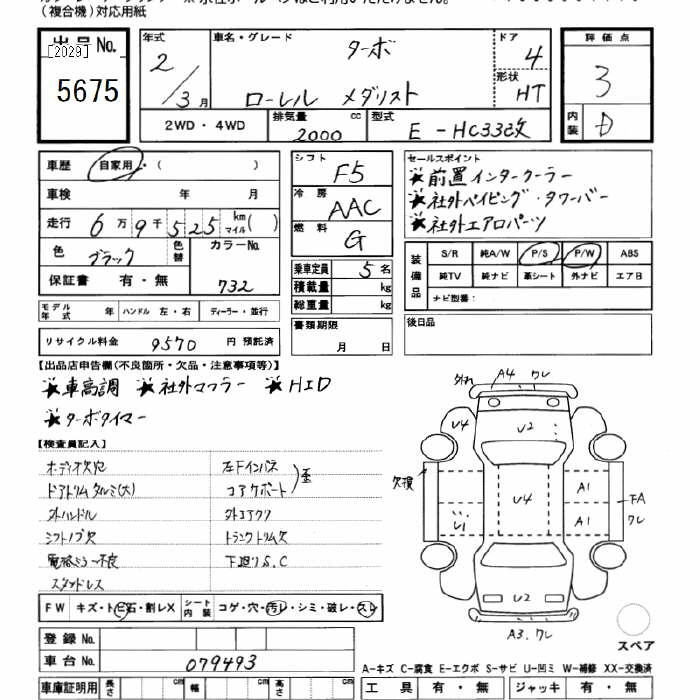 (複合機)対応用紙
出品No.
[2029]
5675
年式 車名・グレード ターボ ドア 4 評価点
2/3月 ローレル メダリスト 形状 HT 3
2WD・4WD 排気量 2000 cc 型式 E-HC33改 内装 D
車歴 自家用・( )
車検 年 月
走行 6万9千525 km マイル( )
色 ブラック 色替 カラーNo. 732
保証書 有・無
モデル年式 年 ハンドル 左・右 ディーラー・並行
リサイクル料金 9570 円 預託済
シフト F5
冷房 AAC
燃料 G
乗車定員 5名
積載量 kg
総重量 kg
書類期限 月 日
セールスポイント
★前置インタークーラー
★社外パイピング・タワーバー
★社外エアロパーツ
装備品 S/R 純A/W P/S P/W ABS
純TV 純ナビ 革シート 外ナビ エアB
ナビ型番:
後日品
【出品店申告欄(不良箇所・欠品・注意事項等)】
★車高調 ★社外マフラー ★HID
★ターボタイマー
【検査員記入】
オーディオ欠穴 左Fインパネ
ドアトリムタルミ(大) コアサポート 歪
外ハンドル
シフトノブ欠 トランクトリム欠
電格ミラー不良 下廻りS.C
スタッドレス
FW キズ・トビ石・割レX シート内装 コゲ・穴・汚レ・シミ・破レ・スレ
登録No.
車台No. 079493
車庫証明用 長さ cm 幅 cm 高さ cm
外れ A4 ワレ
U4 U2
欠損 U4 A1 FA
U1 A1 ワレ
U2
A3.ワレ
スペア
A-キズ C-腐食 E-エクボ S-サビ U-凹ミ W-補修 XX-交換済
工具 有・無 ジャッキ 有・無